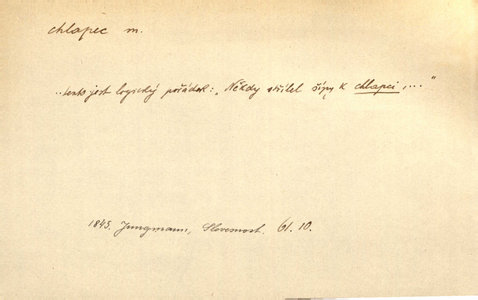 chlapec m.
„tento jest logický pořádek: „Někdy střílel šípy k chlapci,..."
1845. Jungmann, Slovesnost. 61. 10.